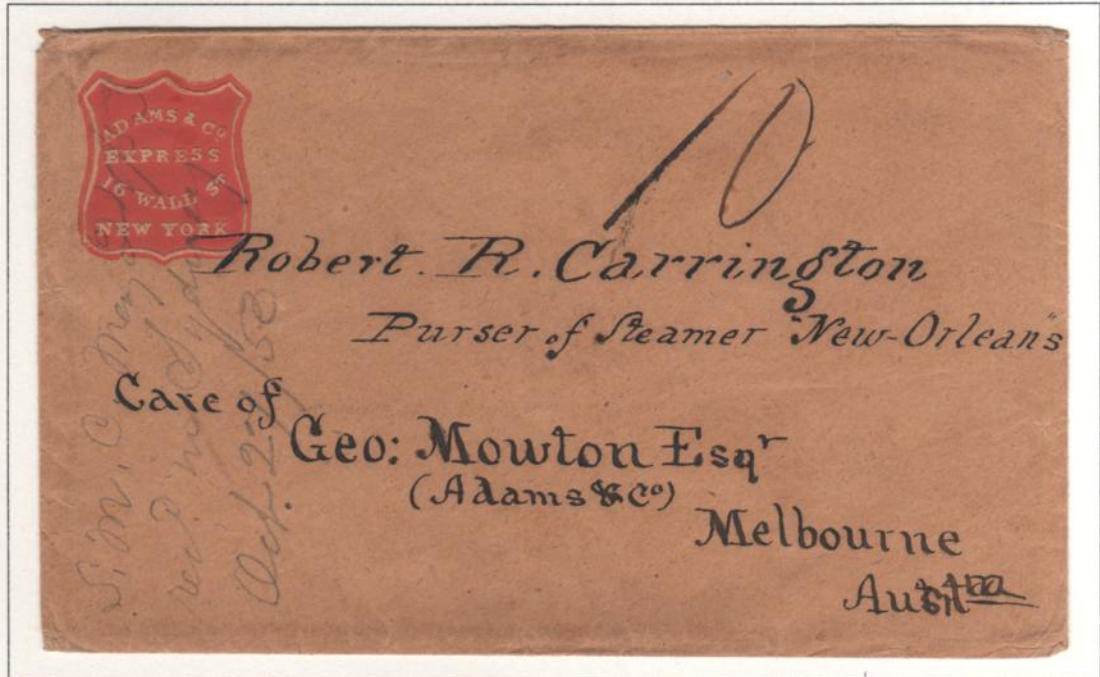 ADAMS & Co
EXPRESS
16 WALL ST
NEW YORK
10
Robert. R. Carrington
Purser of Steamer "New-Orleans"
Care of
Geo: Mowton Esqr
(Adams & Co)
Melbourne
S. M. C. May
rec'd
Oct. 22/53